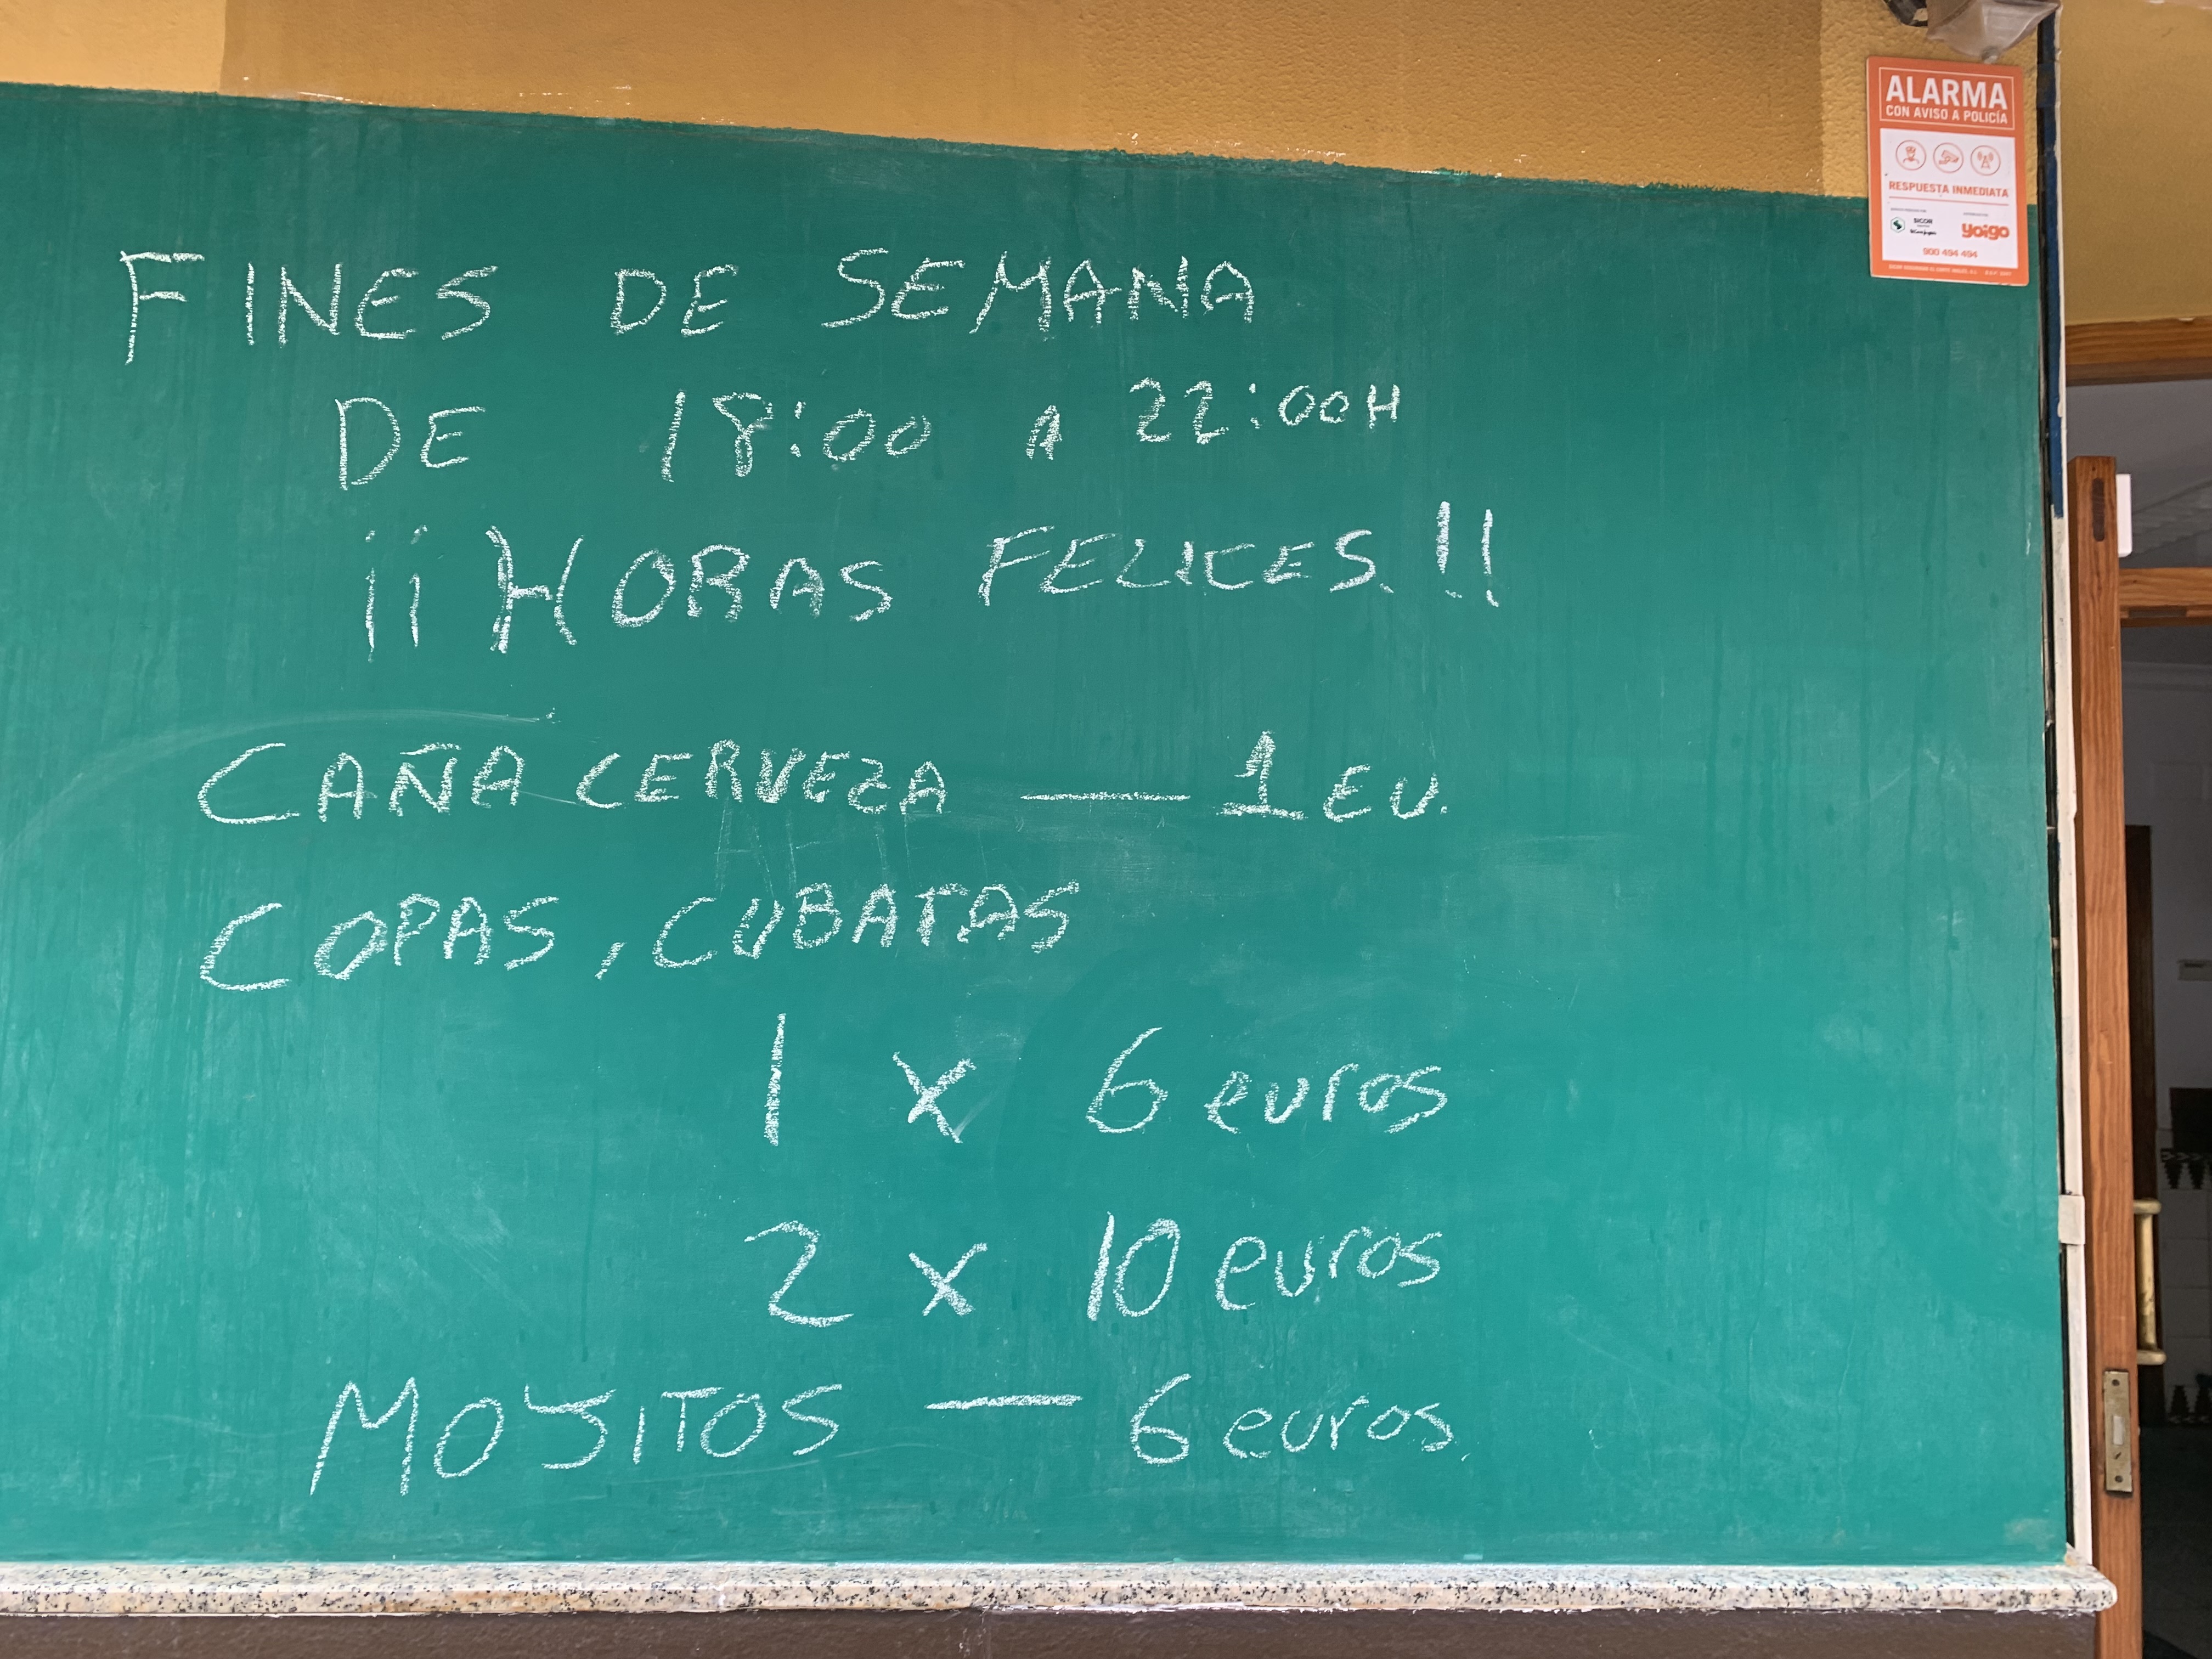 FINES DE SEMANA
DE 18:00 A 22:00H
¡¡HORAS FELICES!!
CAÑA CERVEZA — 1 EU.
COPAS, CUBATAS
1 x 6 euros
2 x 10 euros
MOJITOS — 6 euros
ALARMA
CON AVISO A POLICÍA
RESPUESTA INMEDIATA
SICOR
yoigo
900 494 494